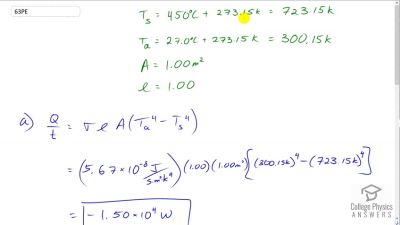 63PE
Ts = 450°C + 273.15k = 723.15k
Ta = 27.0°C + 273.15k = 300.15k
A = 1.00m²
e = 1.00
a) Q/t = σ e A (Ta⁴ - Ts⁴)
= (5.67 × 10⁻⁸ J/s·m²k⁴)(1.00)(1.00m²)[(300.15k)⁴ - (723.15k)⁴]
= -1.50 × 10⁴ W
College Physics
ANSWERS